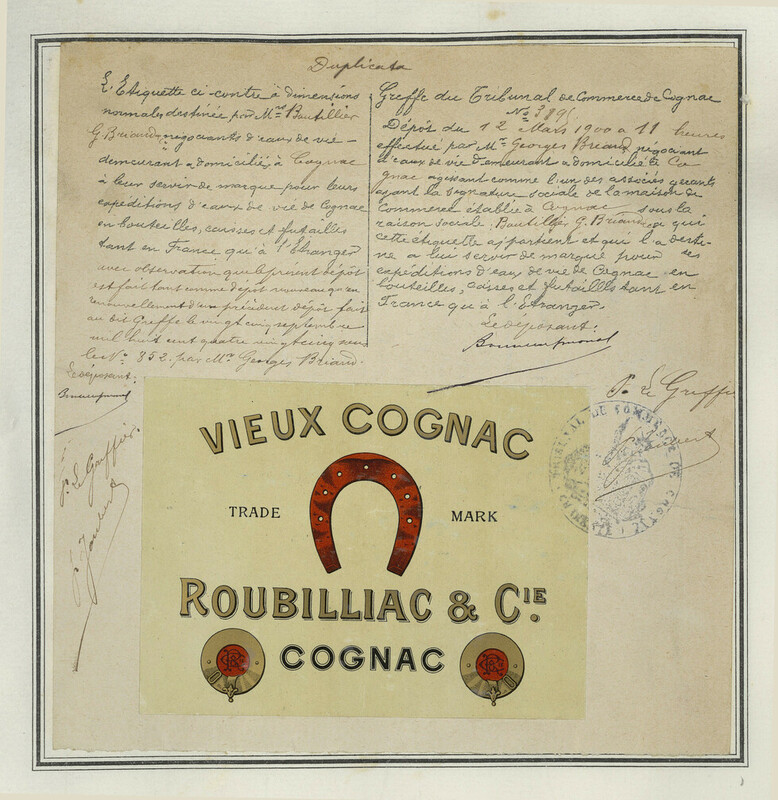 Duplicata
L'Etiquette ci-contre à dimensions
normales destinée par Mrs Boutillier
G Briand, négociants d'eaux de vie
demeurant & domiciliés à Cognac
à leur servir de marque pour leurs
expéditions d'eaux de vie de Cognac
en bouteilles, caisses et futailles
tant en France qu'à l'Etranger
avec observation que le présent dépôt
est fait tant comme dépôt nouveau qu'en
renouvellement d'un précédent dépôt fait
au dit Greffe le vingt cinq septembre
mil huit cent quatre vingt cinq sous
le No 352 par Mr Georges Briand.
Le déposant:
P. Le Greffier.
P. Joubert
Greffe du Tribunal de Commerce de Cognac
Dépôt du 12 Mars 1900 à 11 heures
effectué par Mr Georges Briand négociant
d'eaux de vie demeurant & domicilié à Co
gnac agissant comme l'un des associés gérants
ayant la signature sociale de la maison de
Commerce établie à Cognac sous la
raison sociale: Boutillier G. Briand & a qui
cette étiquette appartient et qui l'a desti-
née a lui servir de marque pour ses
expéditions d'eaux de vie de Cognac en
bouteilles, caisses et futailles tant en
France qu'à l'Etranger.
Le déposant:
P. Le Greffier
Joubert
TRIBUNAL DE COMMERCE DE COGNAC
VIEUX COGNAC
TRADE MARK
ROUBILLIAC & CIE.
COGNAC